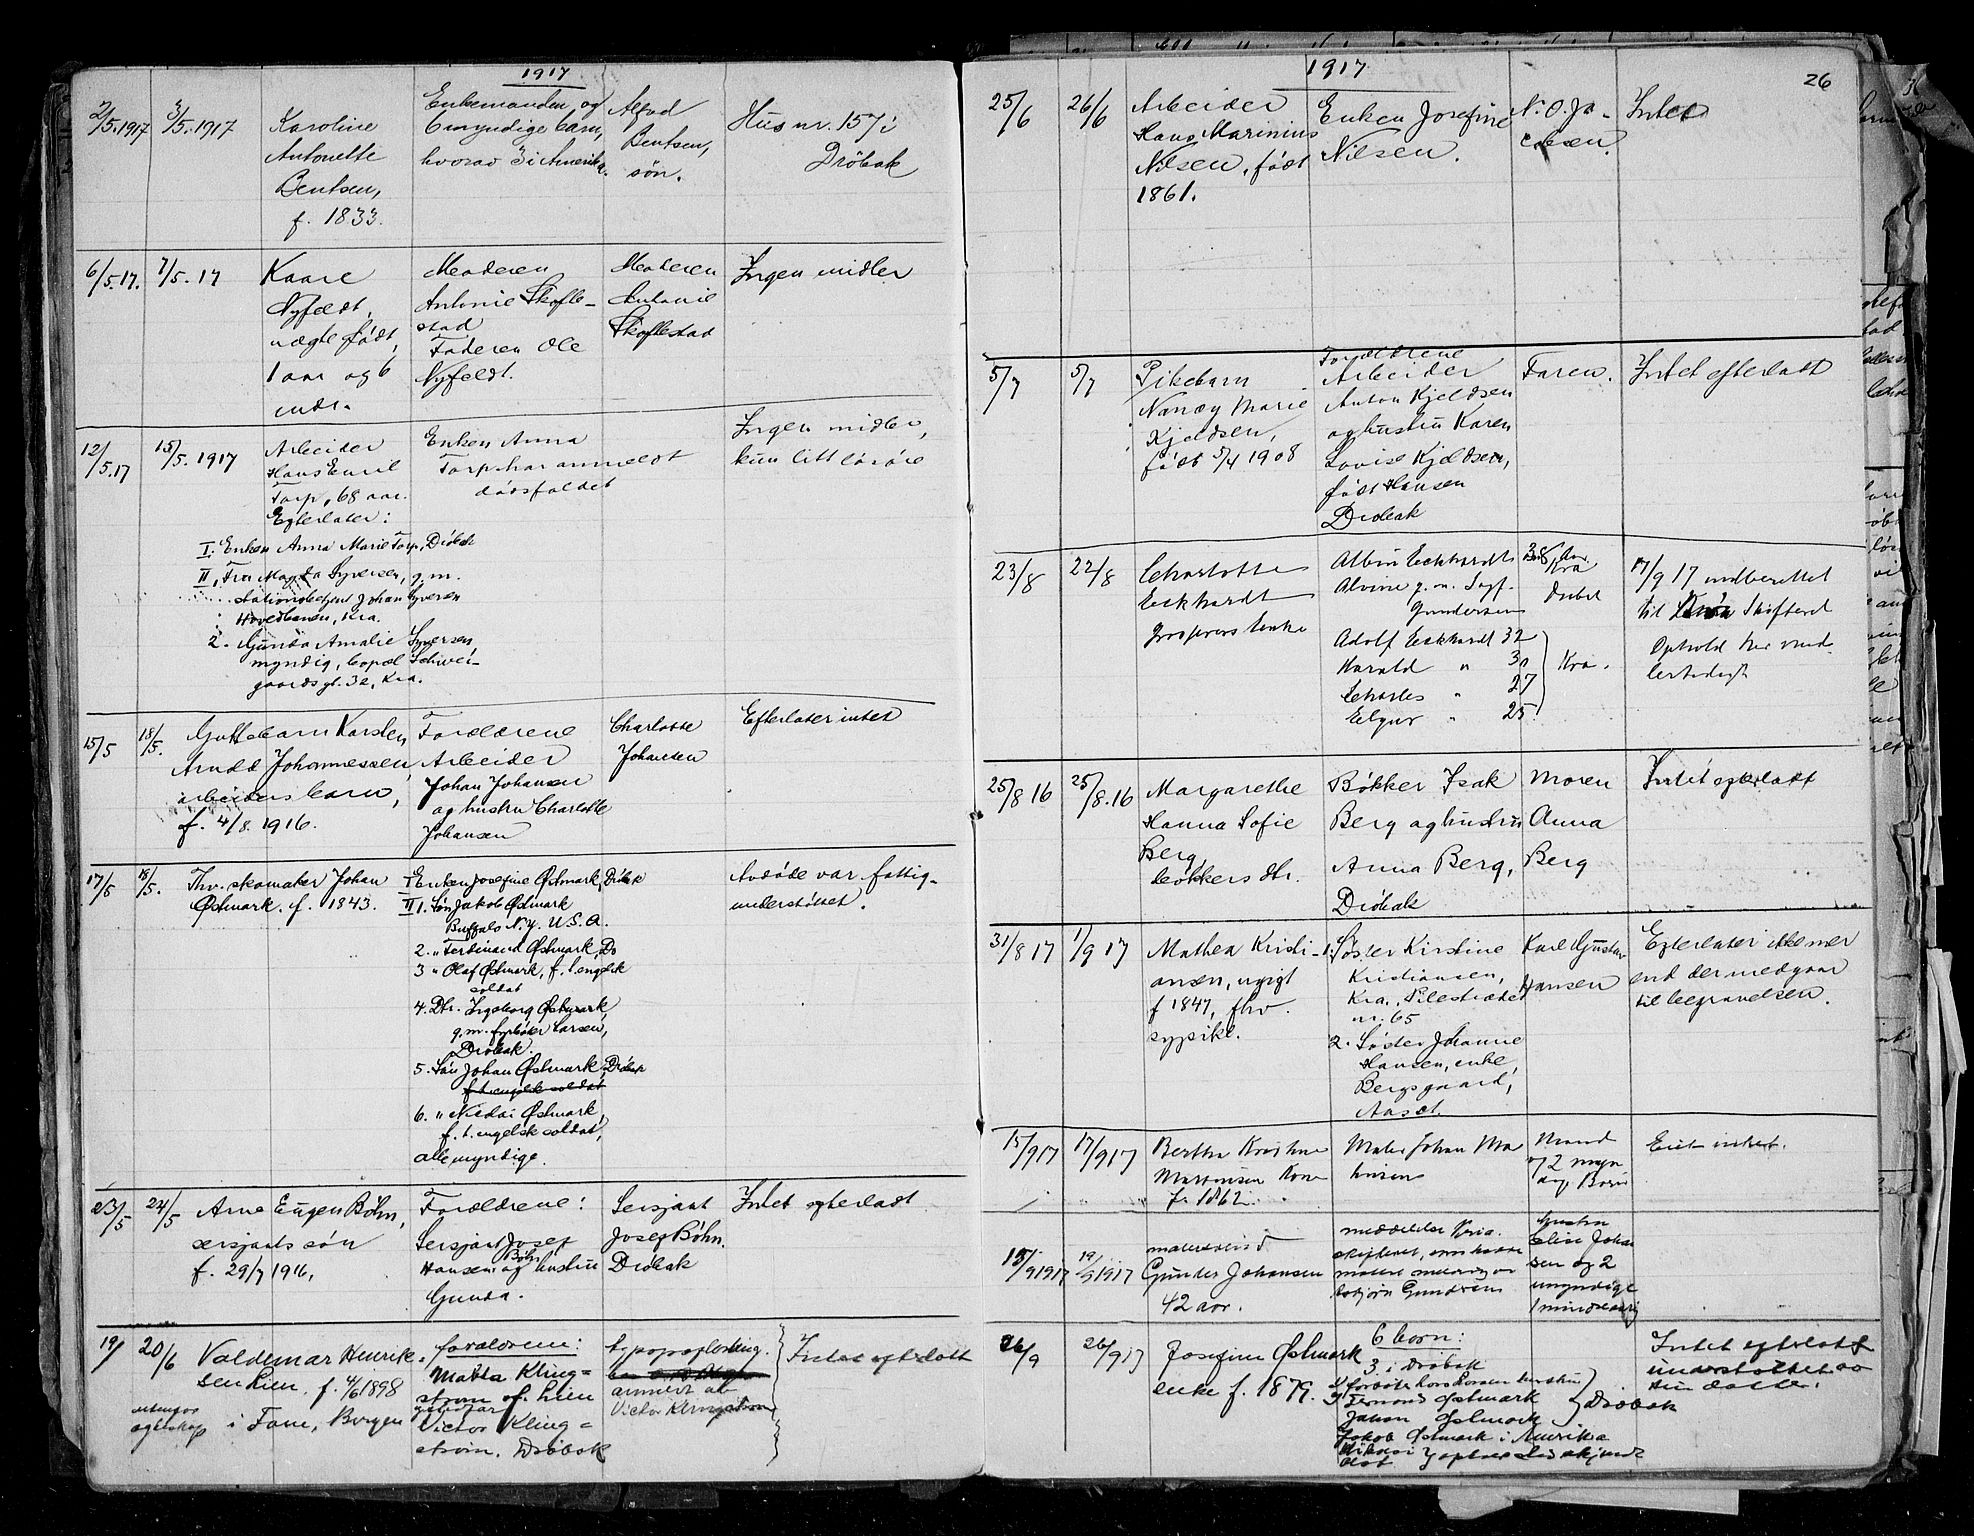 1917
2/5.1917 3/5.1917
Karoline
Antonette
Bentsen,
f. 1833.
Enkemanden og
6 myndige barn,
hvorav 3 i Amerika.
Alfred
Bentsen,
søn.
Hus nr. 157 i
Drøbak
6/5.17. 7/5.17
Kaare
Nyfeldt,
uægte født,
1 aar og 6
mdr.
Moderen
Antonie Skofle-
stad
Faderen Ole
Nyfeldt.
Moderen
Antonie
Skoflestad
Ingen midler
12/5.17 15/5.1917
Arbeider
Hans Emil
Torp, 68 aar.
Efterlater:
I. Enken Anna Marie Torp, Drøbak
II, Fru Magda Syversen, g.m.
stationsbetjent Johan Syversen
Hovedbanen, Kra.
2. Gunda Amalie Syversen
myndig, Schwei-
gaardsgt. 32, Kra.
Enken Anna
Torp har anmeldt
dødsfaldet
Ingen midler,
kun litt løsøre
15/5 18/5.
Guttebarn Karsten
Arndt Johannessen,
arbeiders barn,
f. 4/8. 1916.
Forældrene
Arbeider
Johan Johansen
og hustru Charlotte
Johansen
Charlotte
Johansen
Efterlater intet
17/5 18/5.
Thv. skomaker Johan
Østmark. f. 1843.
I Enken Josefine Østmark, Drøbak
II 1. Søn Jakob Østmark
Buffalo N.Y. U.S.A.
2. " Ferdinand Østmark, Do
3 " Olaf Østmark, f. t. engelsk
soldat
4. Dtr. Ingeborg Østmark,
g.m. fyrbøter Larsen,
Drøbak.
5. Søn Johan Østmark, Drøbak
f. t. engelsk soldat
6. " Nicolai Østmark,
f. t. engelsk soldat,
alle myndige.
Avdøde var fattig-
understøttet.
23/5 24/5
Arne Eugen Bøhn,
sersjants søn
f. 29/7 1916,
Forældrene:
Sersjant Josef
Bøhn
Hansen og hustru
Gunda.
Sersjant
Josef Bøhn.
Drøbak
Intet efterladt
19/ 20/6
Valdemar Henrik-
sen Lien, f. 4/6 1898
i Fane, Bergen
forældrene:
Matha Kling-
strøm f. Lien
Victor Kling-
strøm. Drøbak
anmeldt av
Victor Klingstrøm
Intet efterlatt
1917
26
25/6 26/6
Arbeider
Hans Marinius
Nilsen, født
1861.
Enken Josefine
Nilsen.
N. O. Ja-
cobsen.
Intet
5/7 5/7
Pikebarn
Nancy Marie
Kjeldsen,
født 5/4 1908
Forældrene
Arbeider
Anton Kjeldsen
og hustru Karen
Lovise Kjeldsen,
født Hansen
Drøbak
Faren.
Intet efterladt
23/8 22/8
Charlotte
Eckhardt
Albin Eckhardt
Alvine g.m. Sigf.
Gundersen
Adolf Eckhardt 32
Harald " 30
Charles " 27
" 25
38 Aar
Kra
Kra.
17/9 17 indberettet
til Kria Skifteret
Ophold her
25/8 16 25/8.16
Margarethe
Hanna Sofie
Berg,
bøkkers dtr.
Bøkker Isak
Berg og hustru
Anna Berg,
Drøbak
Moren
Anna
Berg
Intet efterladt
31/8 17 1/9 17
Mathea Kristi-
ansen, ugift
f 1847, fhv.
sypike.
1. Søster Kirstine
Kristiansen,
Kra., Pilestrædet
nr. 65
2. Søster Johanne
Hansen, enke,
Bergsgaard,
Aaset.
Karl Gustav
Hansen
Efterlater ikke mer
end der medgaar
til begravelsen.
15/9 17 17/9 17
Bertha Kristine
Martinsen Kone
f. 1862.
Maler Johan Ma
rtinsen
Mand
og 2 myn
dige Børn
Eier intet.
15/9 1917 19/9 1917
Gunder Johansen
42 aar.
meddelelse Kria.
skifteret,
Hustru
Elise Johan
sen og 2
umyndige
1 mindreaarig
26/9 26/9 17
Josefine Østmark
enke f. 1879.
6 born:
3 i Drøbak
Fernand Østmark
Johan Østmark
Drøbak
Jakob Østmark i Amerika
Nikolai
Olaf
Intet efterlatt
understøttet av
sin datter.